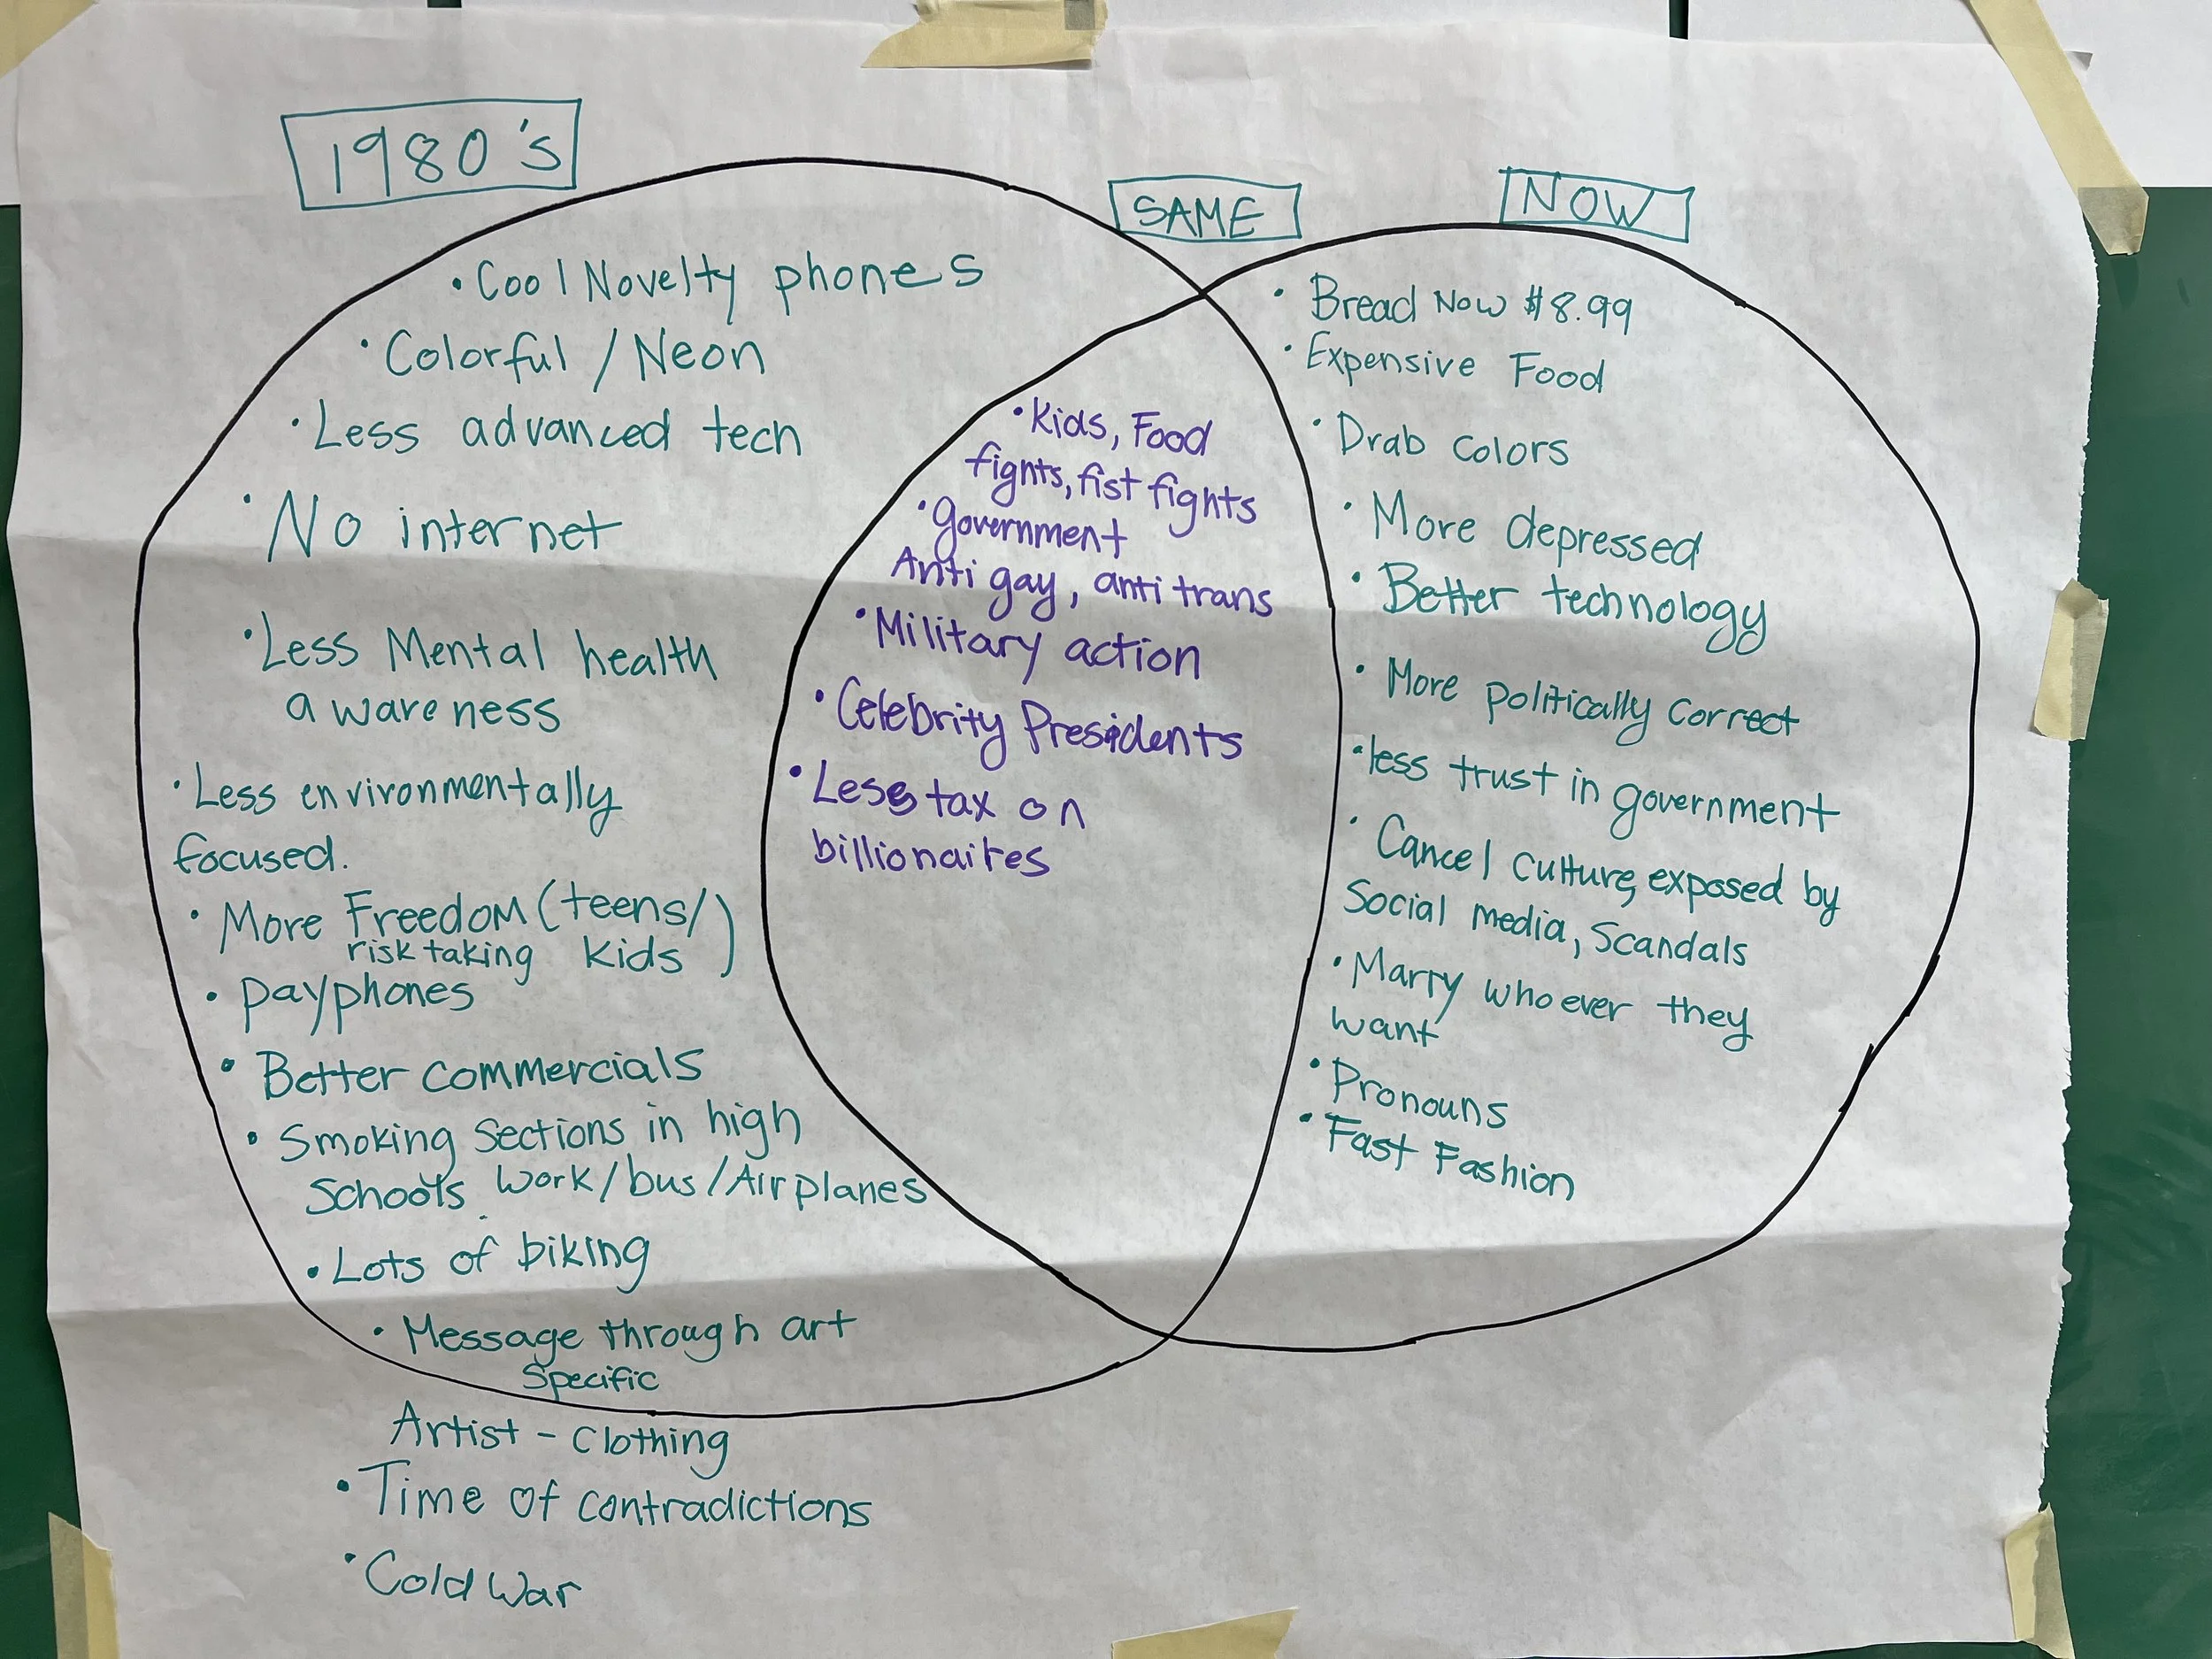 1980's
• Cool Novelty phones
• Colorful / Neon
• Less advanced tech
• No internet
• Less Mental health
awareness
• Less environmentally
focused.
• More Freedom (teens/
risk taking kids)
• payphones
• Better commercials
• Smoking Sections in high
Schools work/bus/Airplanes
• Lots of biking
• Message through art
Specific
Artist - Clothing
• Time of contradictions
• Cold War
SAME
• Kids, Food
fights, fist fights
• government
Anti gay, anti trans
• Military action
• Celebrity Presidents
• Less tax on
billionaires
NOW
• Bread Now $8.99
• Expensive Food
• Drab colors
• More depressed
• Better technology
• More politically correct
• less trust in government
• Cancel culture, exposed by
Social media, Scandals
• Marry who ever they
want
• Pronouns
• Fast Fashion